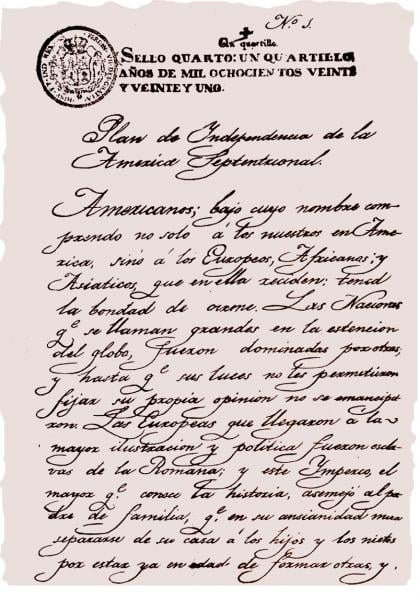 N.º 1.
Un quartillo.
SELLO QUARTO: UN QUARTILLO,
AÑOS DE MIL OCHOCIENTOS VEINTE
Y VEINTE Y UNO.
Plan de Independencia de la
America Septentrional.
Americanos; bajo cuyo nombre com
prendo no solo á los nuestros en Ame
rica, sinó á los Europeos, Africanos; y
Asiaticos, que en ella reciden: tened
la bondad de oirme. Las Naciones
q.e se llaman grandes en la estencion
del globo, fueron dominadas por otras;
y hasta q.e sus luces no les permitieron
fijar su propia opinion no se emancipa
ron. Las Europeas que llegaron á la
mayor ilustracion y politica fueron escla
vas de la Romana; y este Imperio, el
mayor q.e conoce la historia, asemejó al pa
dre de familia, q.e en su ansianidad mira
separarse de su casa á los hijos y los nietos
por estar ya en edad de formar otras, y